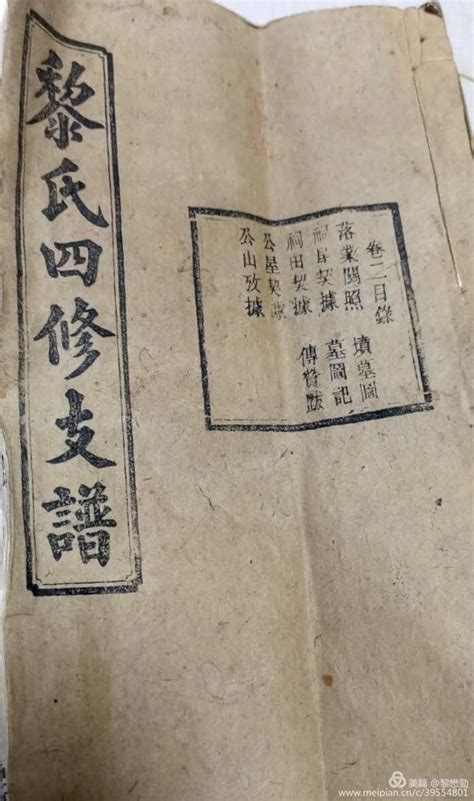 黎氏四修支譜
卷二目錄
落業關照 墳墓圖
祠屋契據 墓圖記
祠田契據 傳贊跋
公屋契據
公山契據
美篇 @黎懋勁
www.meipian.cn/c/39554801